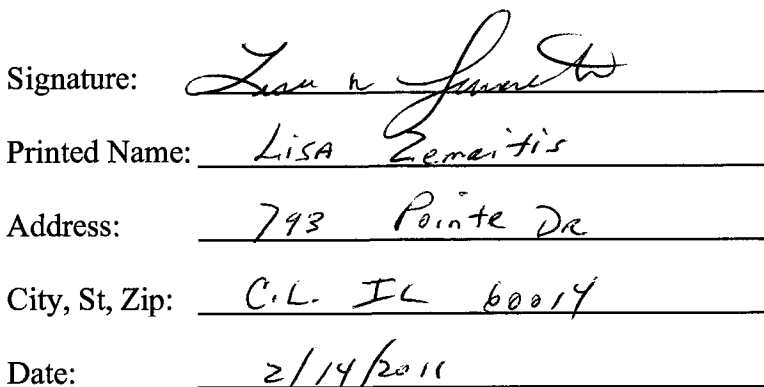 Signature: Lisa
Printed Name: Lisa Zemaitis
Address: 793 Pointe Dr
City, St, Zip: C.L. IL 60014
Date: 2/14/2011